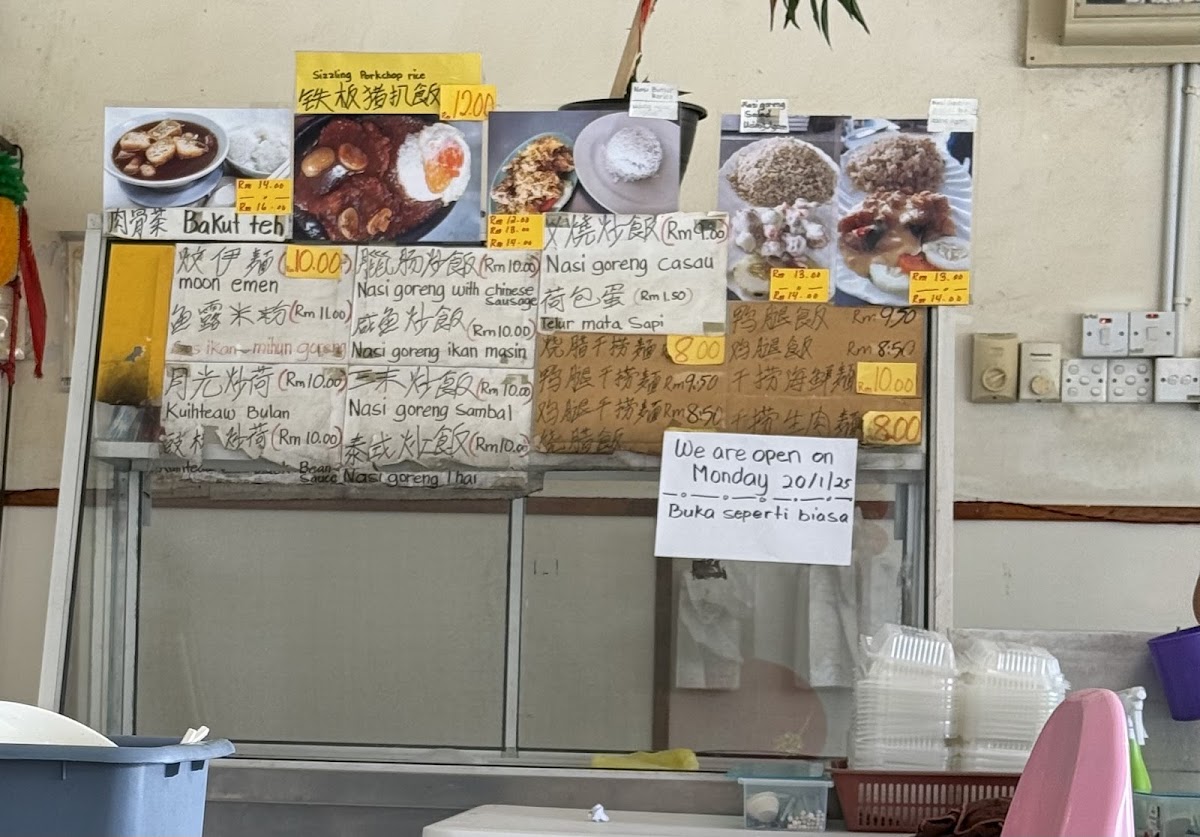 Sizzling Porkchop rice
铁板猪扒飯
Rm 12.00
Rm 14.00
Rm 16.00
肉骨茶 Bakut teh
Rm 12.00
Rm 13.00
Rm 14.00
Nasi goreng
Rm 13.00
Rm 14.00
Rm 13.00
Rm 14.00
伊麵 10.00
moon emen
鱼露米粉 (Rm 11.00)
ikan mihun goreng
月光炒荷 (Rm 10.00)
Kuihteaw Bulan
炒荷 (Rm 10.00)
Bean
Sauce
臘肠炒飯 (Rm 10.00)
Nasi goreng with chinese
Sausage
咸鱼炒飯 (Rm 10.00)
Nasi goreng ikan masin
炒飯 (Rm 10.00)
Nasi goreng Sambal
泰式炒飯 (Rm 10.00)
Nasi goreng Thai
燒炒飯 (Rm 9.00)
Nasi goreng Casau
荷包蛋 (Rm 1.50)
Telur mata Sapi
烧腊干捞麵 8.00
鸭腿干捞麵 Rm 9.50
鸡腿干捞麵 Rm 8.50
烧腊飯
鸭腿飯 Rm 9.50
鸡腿飯 Rm 8.50
干捞海鲜麵 10.00
干捞生肉麵 8.00
We are open on
Monday 20/1/25
Buka seperti biasa